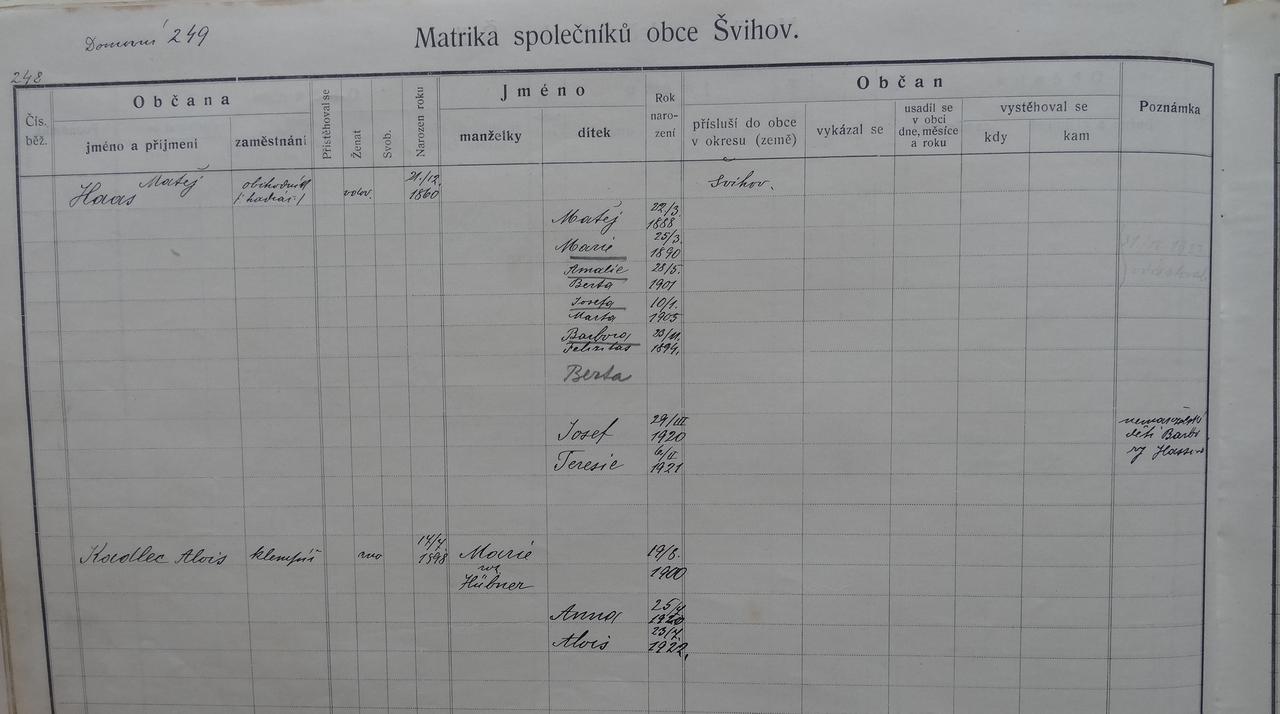 Domovní 249
Matrika společníků obce Švihov.
248
Čís. běž.
Občana
jméno a příjmení
zaměstnání
Přistěhoval se
Ženat
Svob.
Narozen roku
Jméno
manželky
dítek
Rok naro- zení
Občan
přísluší do obce v okresu (země)
vykázal se
usadil se v obci dne, měsíce a roku
vystěhoval se
kdy
kam
Poznámka
Haas Matěj obchodník vdov. 21./12. 1860 Švihov.
Matěj 22/3. 1888
Marie 25/3. 1890
Amalie 28/5.
Berta 1901
Josefa 10/1.
Marta 1905
Barbora
Felixitas 1894.
Berta
Josef 29/III 1920 nemanželské
děti Barbo
Teresie 6/II. 1921 ry
Kadlec Alois klempíř 1898 Marie 19/8.
roz. 1900
Hübner
Anna 25/4 1920
Alois 1922.